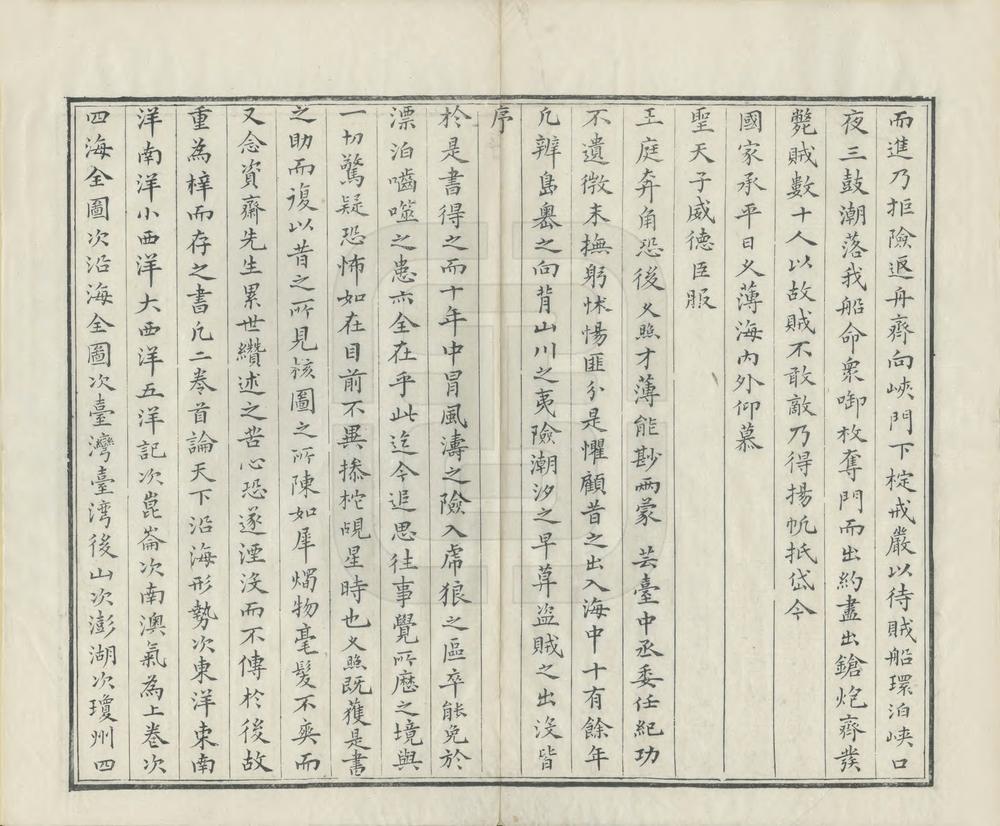 而進乃拒險返舟齊向峽門下椗戒嚴以待賊船環泊峽口
夜三鼓潮落我船命衆啣枚奪門而出約盡出鎗炮齊發
斃賊數十人以故賊不敢敵乃得揚帆抵岱今
國家承平日乂薄海內外仰慕
聖天子威德臣服
王庭奔角恐後乂照才薄能尠兩蒙 芸臺中丞委任紀功
不遺微末撫躬怵惕匪分是懼顧昔之出入海中十有餘年
凡辨島嶴之向背山川之夷險潮汐之早草盜賊之出沒皆
序
於是書得之而十年中冒風濤之險入虎狼之區卒能免於
漂泊嚙噬之患亦全在乎此迄今追思往事覺所歷之境與
一切驚疑恐怖如在目前不異摻柁覘星時也乂照既獲是書
之助而復以昔之所見核圖之所陳如犀燭物毫髮不爽而
又念資齋先生累世纘述之苦心恐遂湮沒而不傳於後故
重為梓而存之書凡二卷首論天下沿海形勢次東洋東南
洋南洋小西洋大西洋五洋記次崑崙次南澳氣為上卷次
四海全圖次沿海全圖次臺灣臺湾後山次澎湖次瓊州四